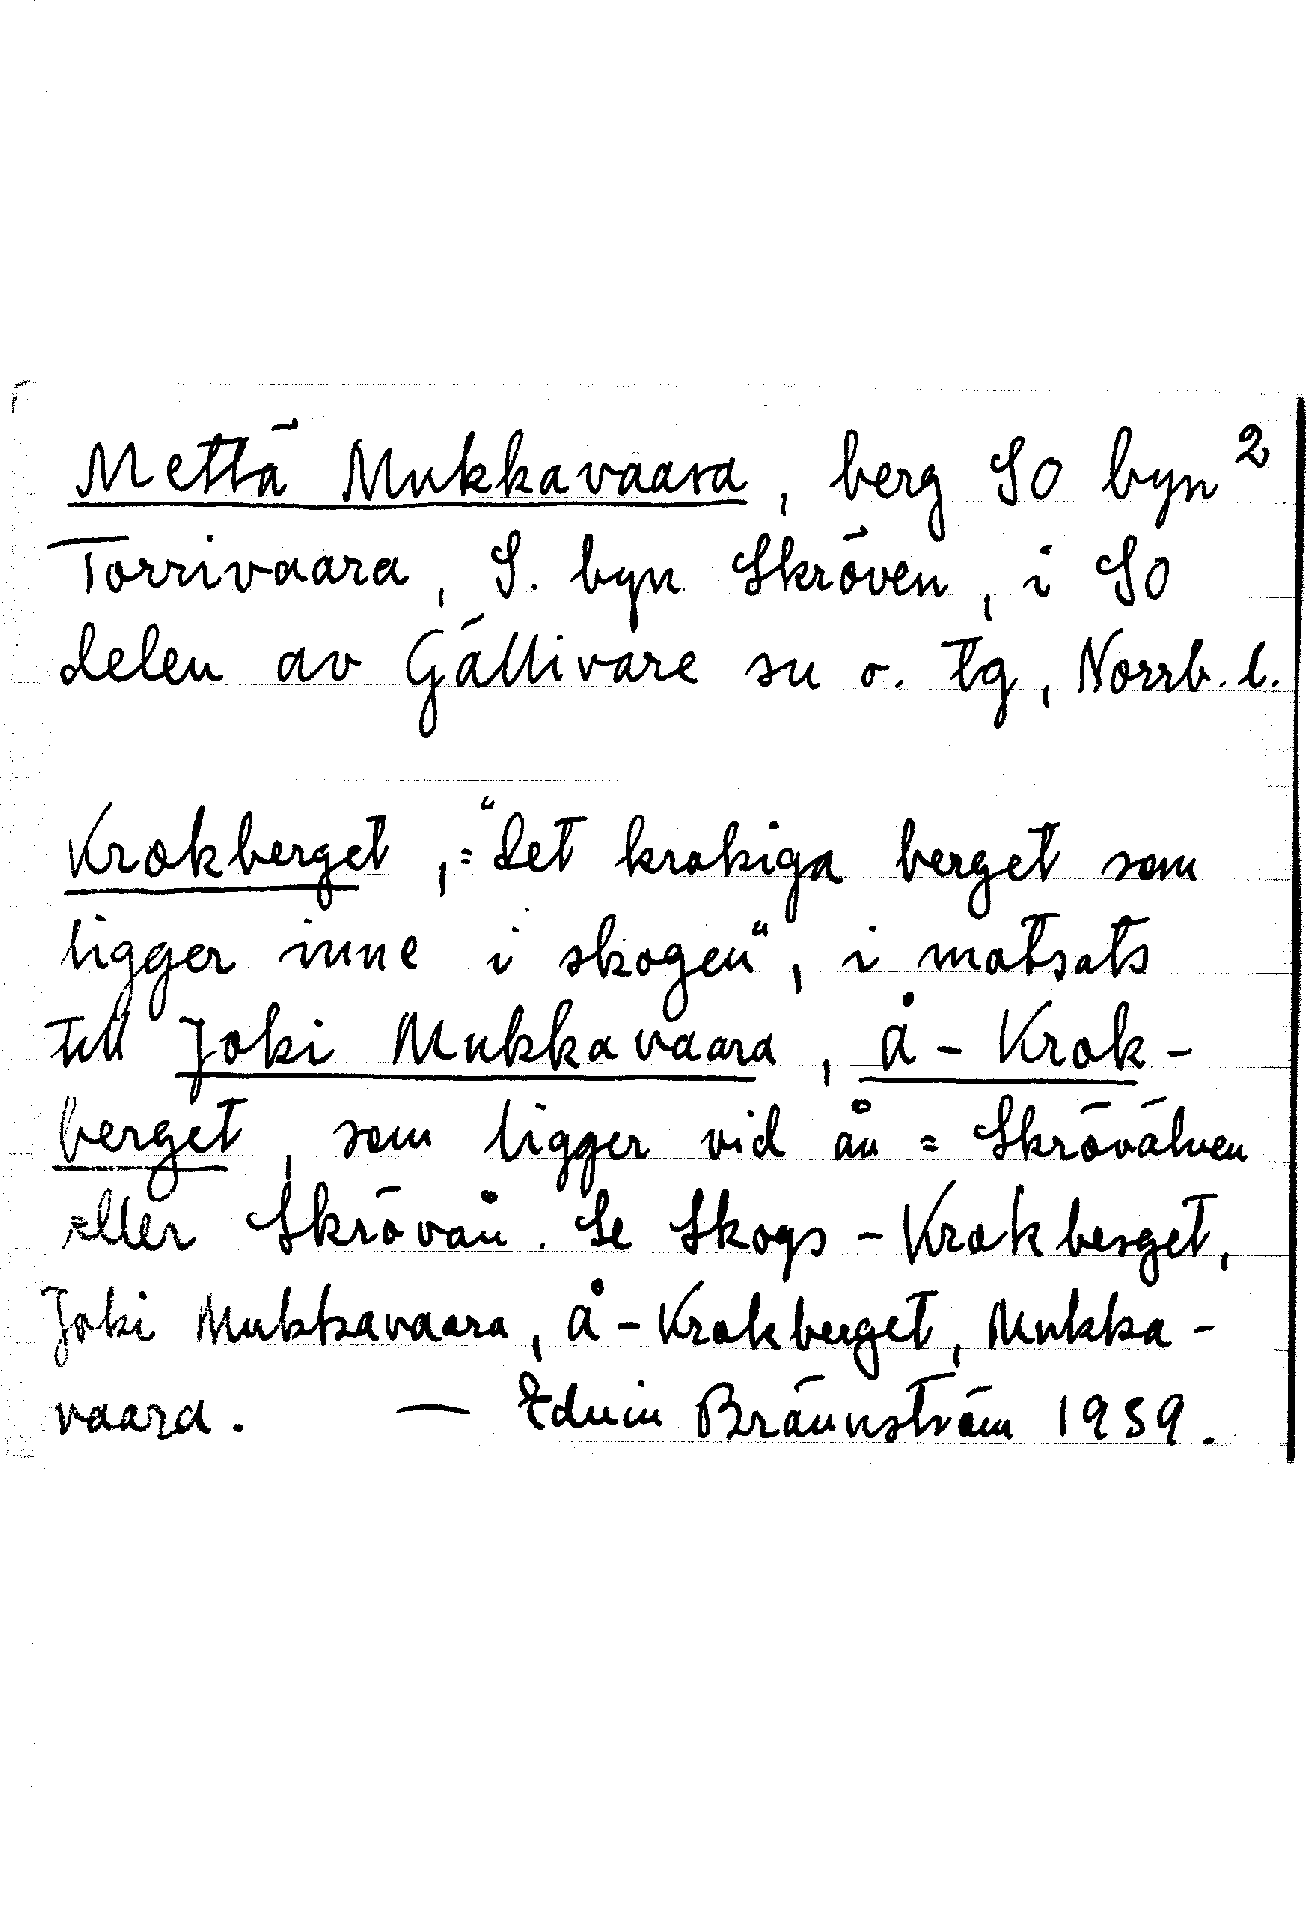 Mettä Mukkavaara, berg SO byn 2
Torrivaara, S. byn Skröven, i SO
delen av Gällivare sn o. tg, Norrb. l.
Krokberget, = "det krokiga berget som
ligger inne i skogen", i motsats
till Joki Mukkavaara, Å-Krok-
berget, som ligger vid ån = Skrövälven
eller Skrövån. Se Skogs-Krokberget,
Joki Mukkavaara, Å-Krokberget, Mukka-
vaara. — Edvin Brännström 1959.